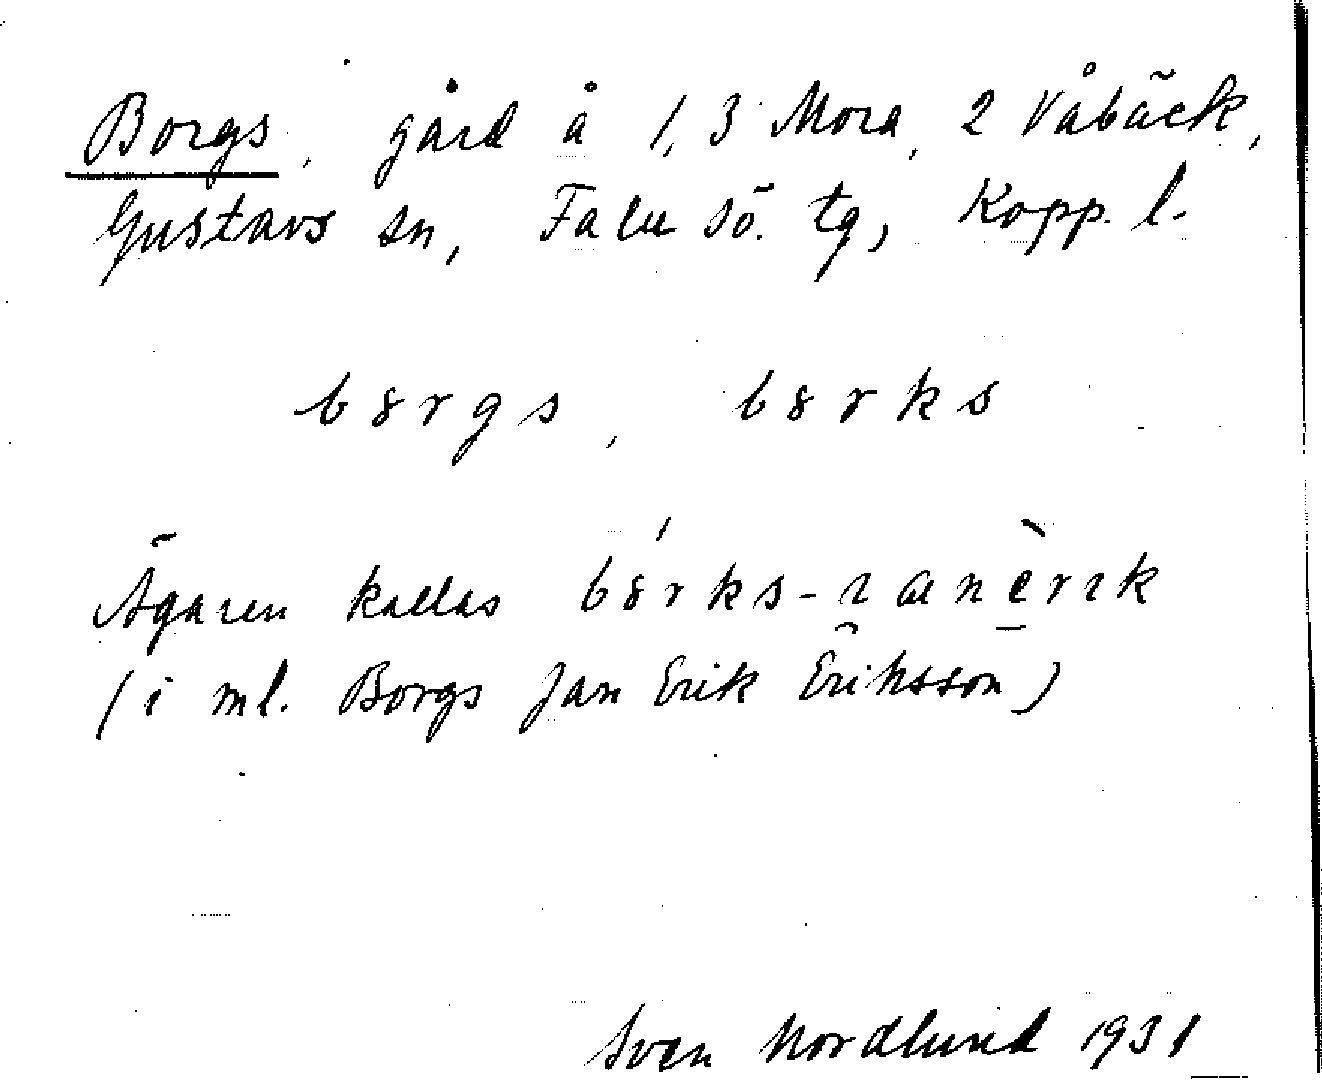 Borgs, gård å 1, 3 Mora, 2 Våbäck,
Gustavs sn, Falu sö. tg, Kopp. l.
b8rgs, b8rks
Ägaren kallas b8́rks-ıanèrık
(i ml. Borgs Jan Erik Eriksson)
Sven Nordlund 1931